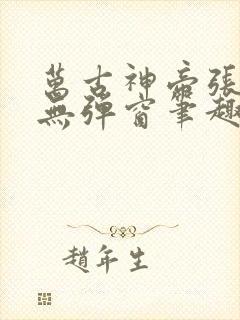 萬古神帝張
無彈窗筆趣
趙年生